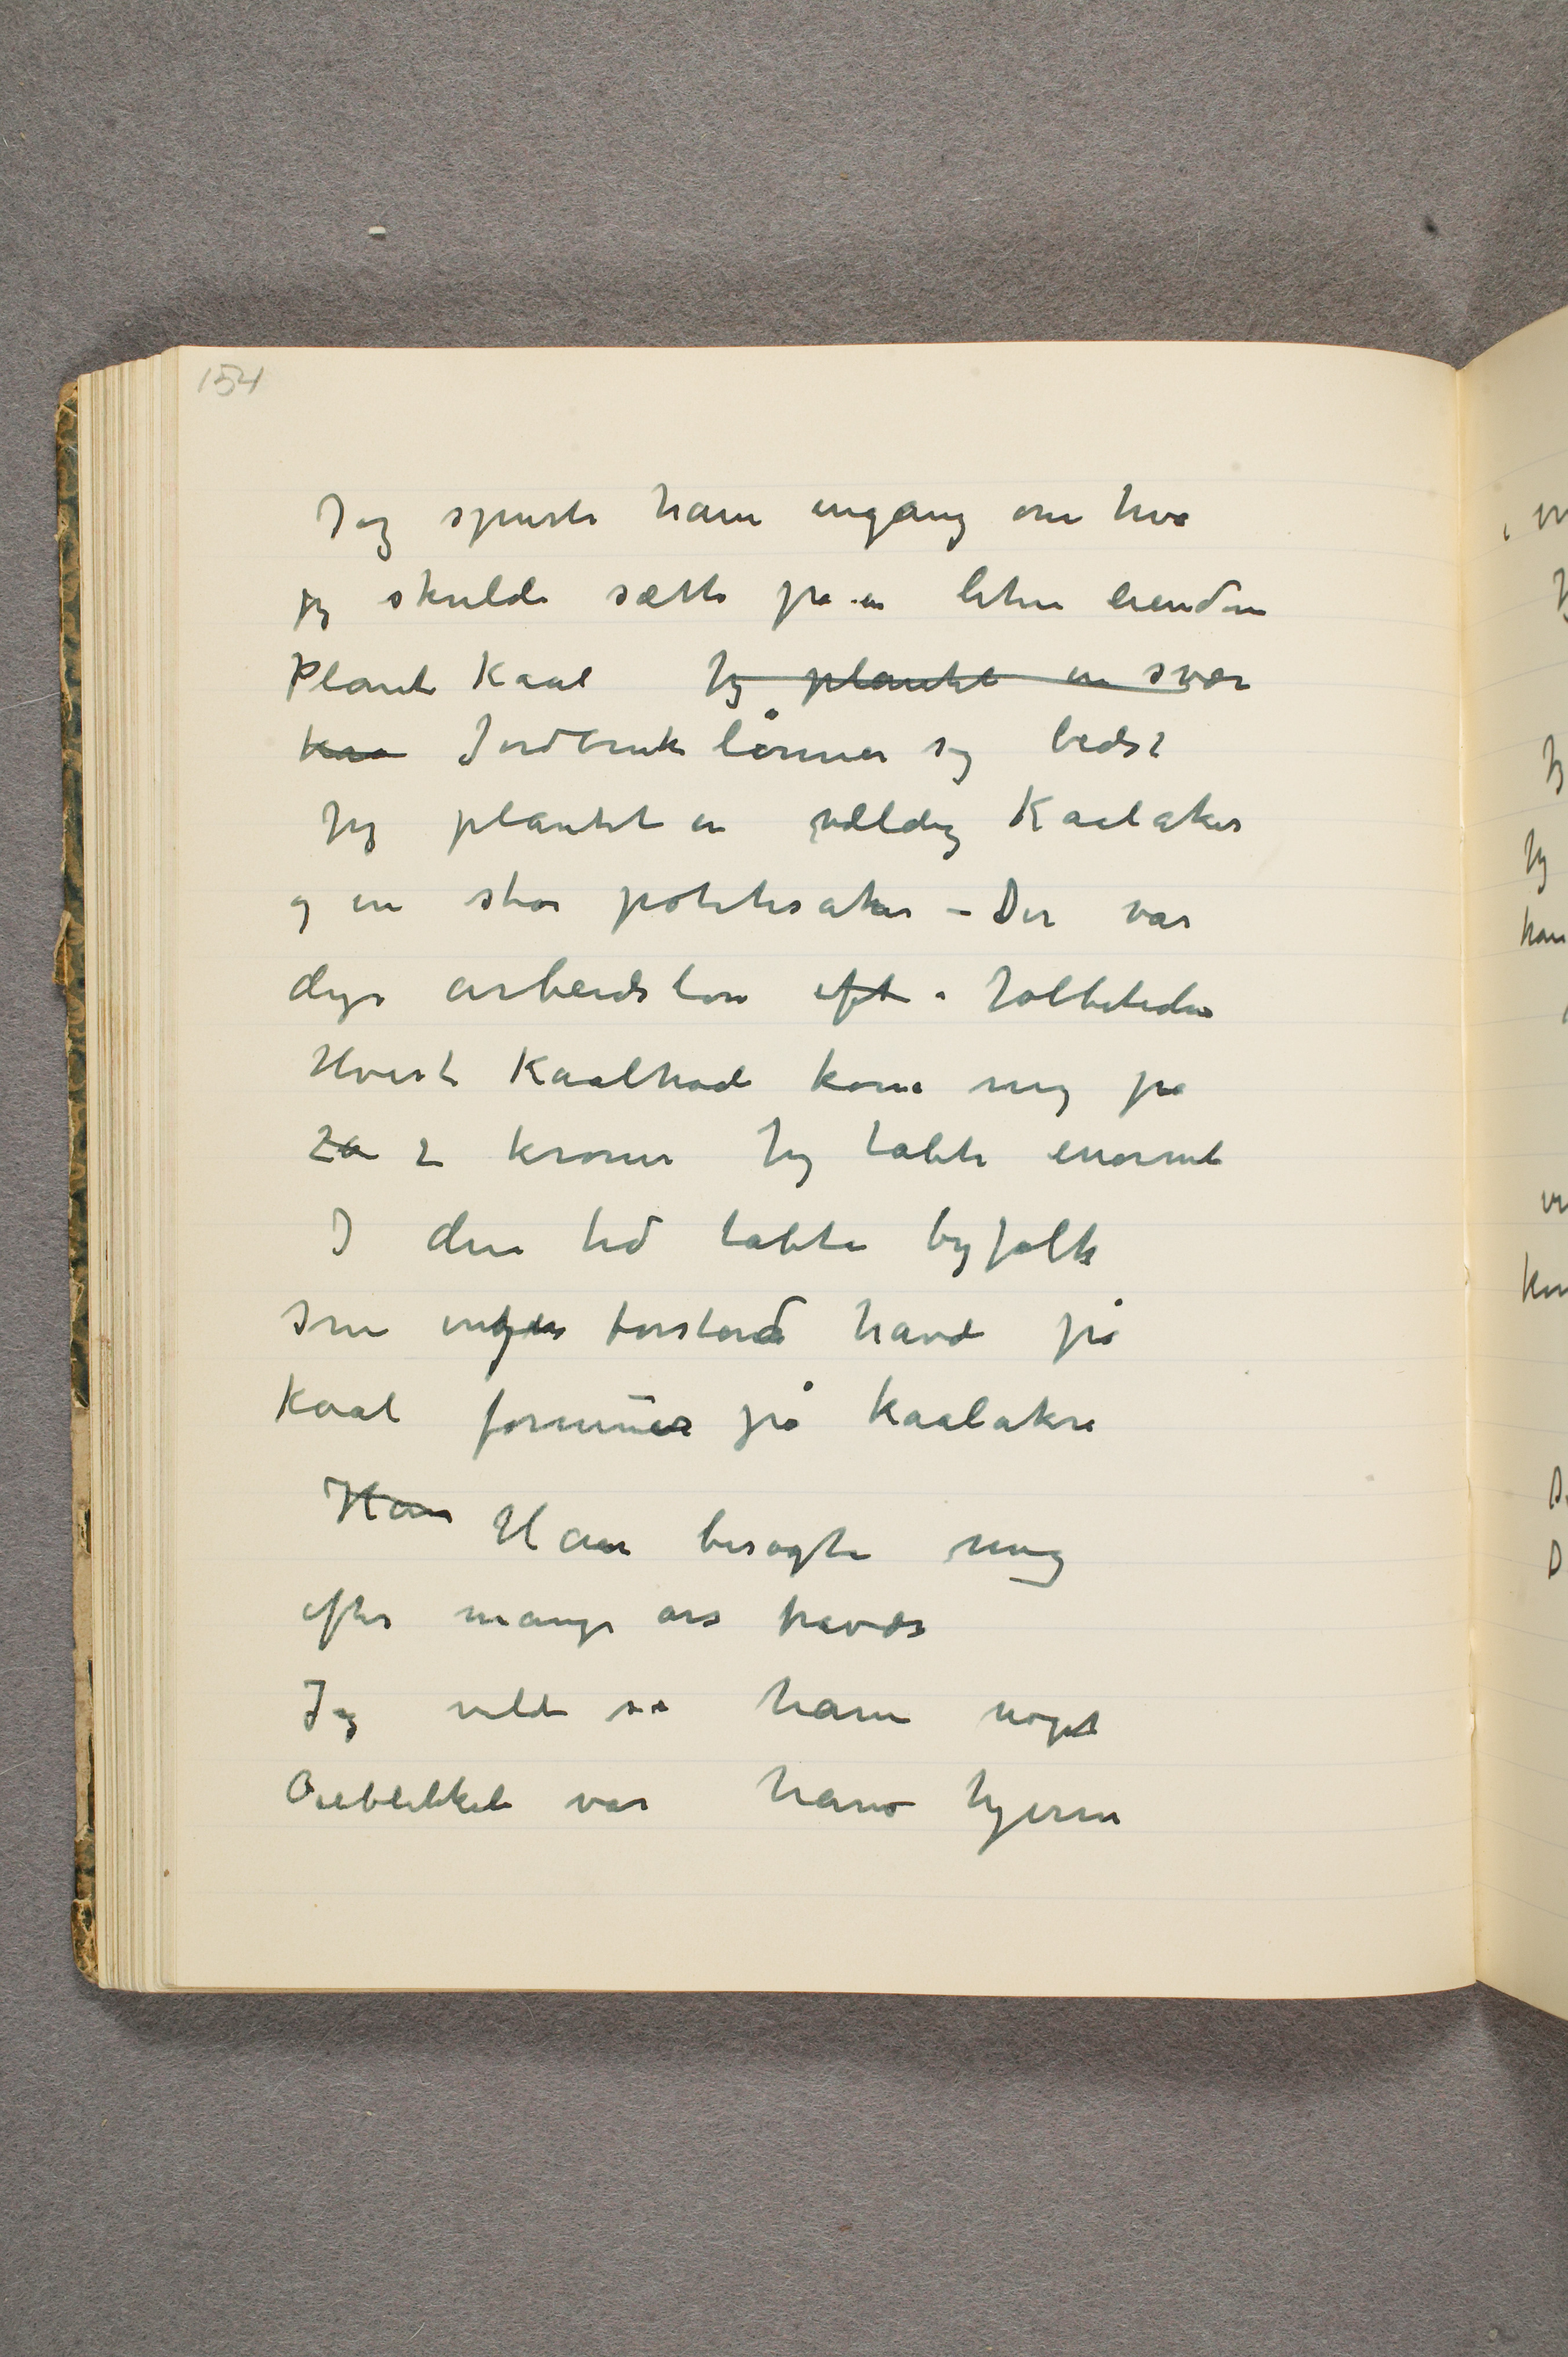 154
Jeg spurte ham engang om hva
jeg skulde sætte på en liten eiendom
Plante Kaal Jeg plantet en svær
kaa Jordbruk lønner sig bedst
Jeg plantet en vældig Kaalaker
og en stor potetesaker – Der var
dyr arbeidsløn eft i Jobbetiden
Hvert Kaalhode kom mig på
20 2 kroner Jeg tabte enormt
I den tid tabte byfolk
som ingen forstand havde på
Kaal formuer på kaalakre
Han Han besøgte mig
efter mange års fravær
Jeg vilde se ham noget
Øieblikkelig var hans hjerne